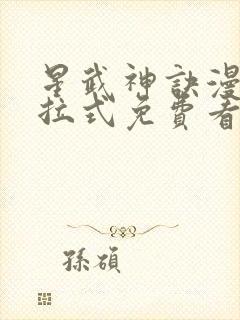 星武神訣漫
拉式免費看
孫碩